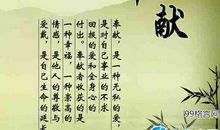 献
奉献，是一种无私的爱，
是对自己事业的不求
回报的爱和全身心的
付出。奉献者收获的是
一种幸福，一种崇高的
情感，是他人的尊敬与
爱戴，是自己生命的延
99格言网